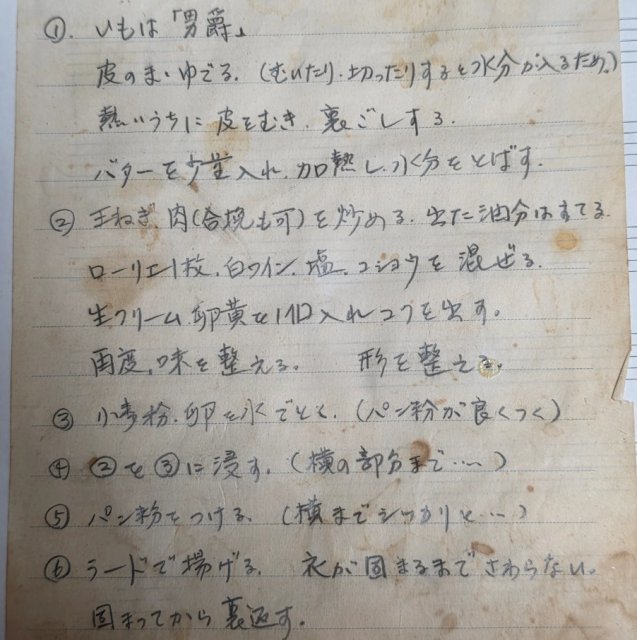 ① いもは「男爵」
皮のまゝゆでる。(むいたり、切ったりすると水分が入るため。)
熱いうちに皮をむき、裏ごしする。
バターを少量入れ、加熱し、水分をとばす。
② 玉ねぎ、肉(合挽も可)を炒める。出た油分はすてる。
ローリエ1枚、白ワイン、塩、コショウを混ぜる。
生クリーム、卵黄を1個入れコクを出す。
再度、味を整える。 形を整える。
③ 小麦粉、卵を水でとく。(パン粉が良くつく)
④ ②を③に浸す。(横の部分まで……)
⑤ パン粉をつける。(横までシッカリと…)
⑥ ラードで揚げる。 衣が固まるまでさわらない。
固まってから裏返す。